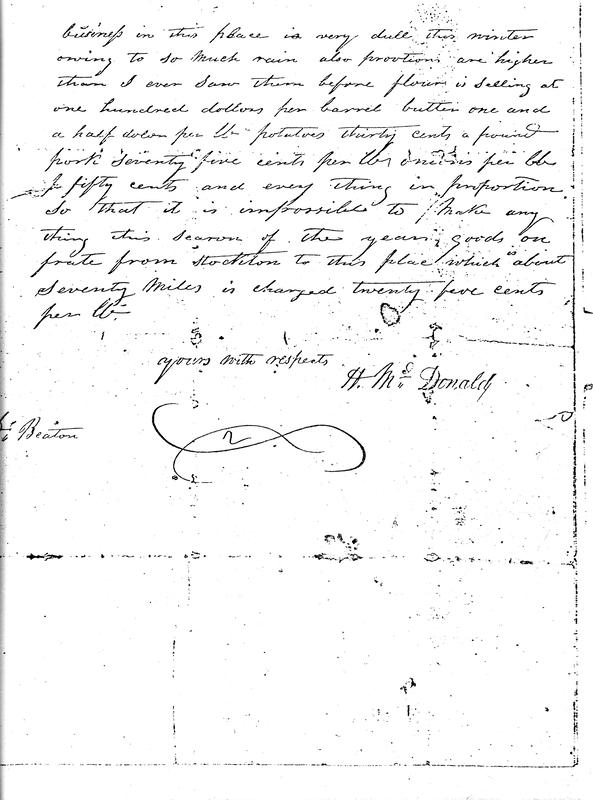 business in this place is very dull this winter
owing to so much rain also provtions are higher
than I ever saw them before flour is selling at
one hundred dollars per barrel butter one and
a half doler per lb potatoes thirty cents a pound
pork seventy five cents per lb onions per lb
$ fifty cents and every thing in proportion
So that it is impossible to make any
thing this season of the year, goods on
frate from Stockton to this place which is about
Seventy Miles is charged twenty five cents
per lb
yours with respects
H. Mc Donald
Beaton
2